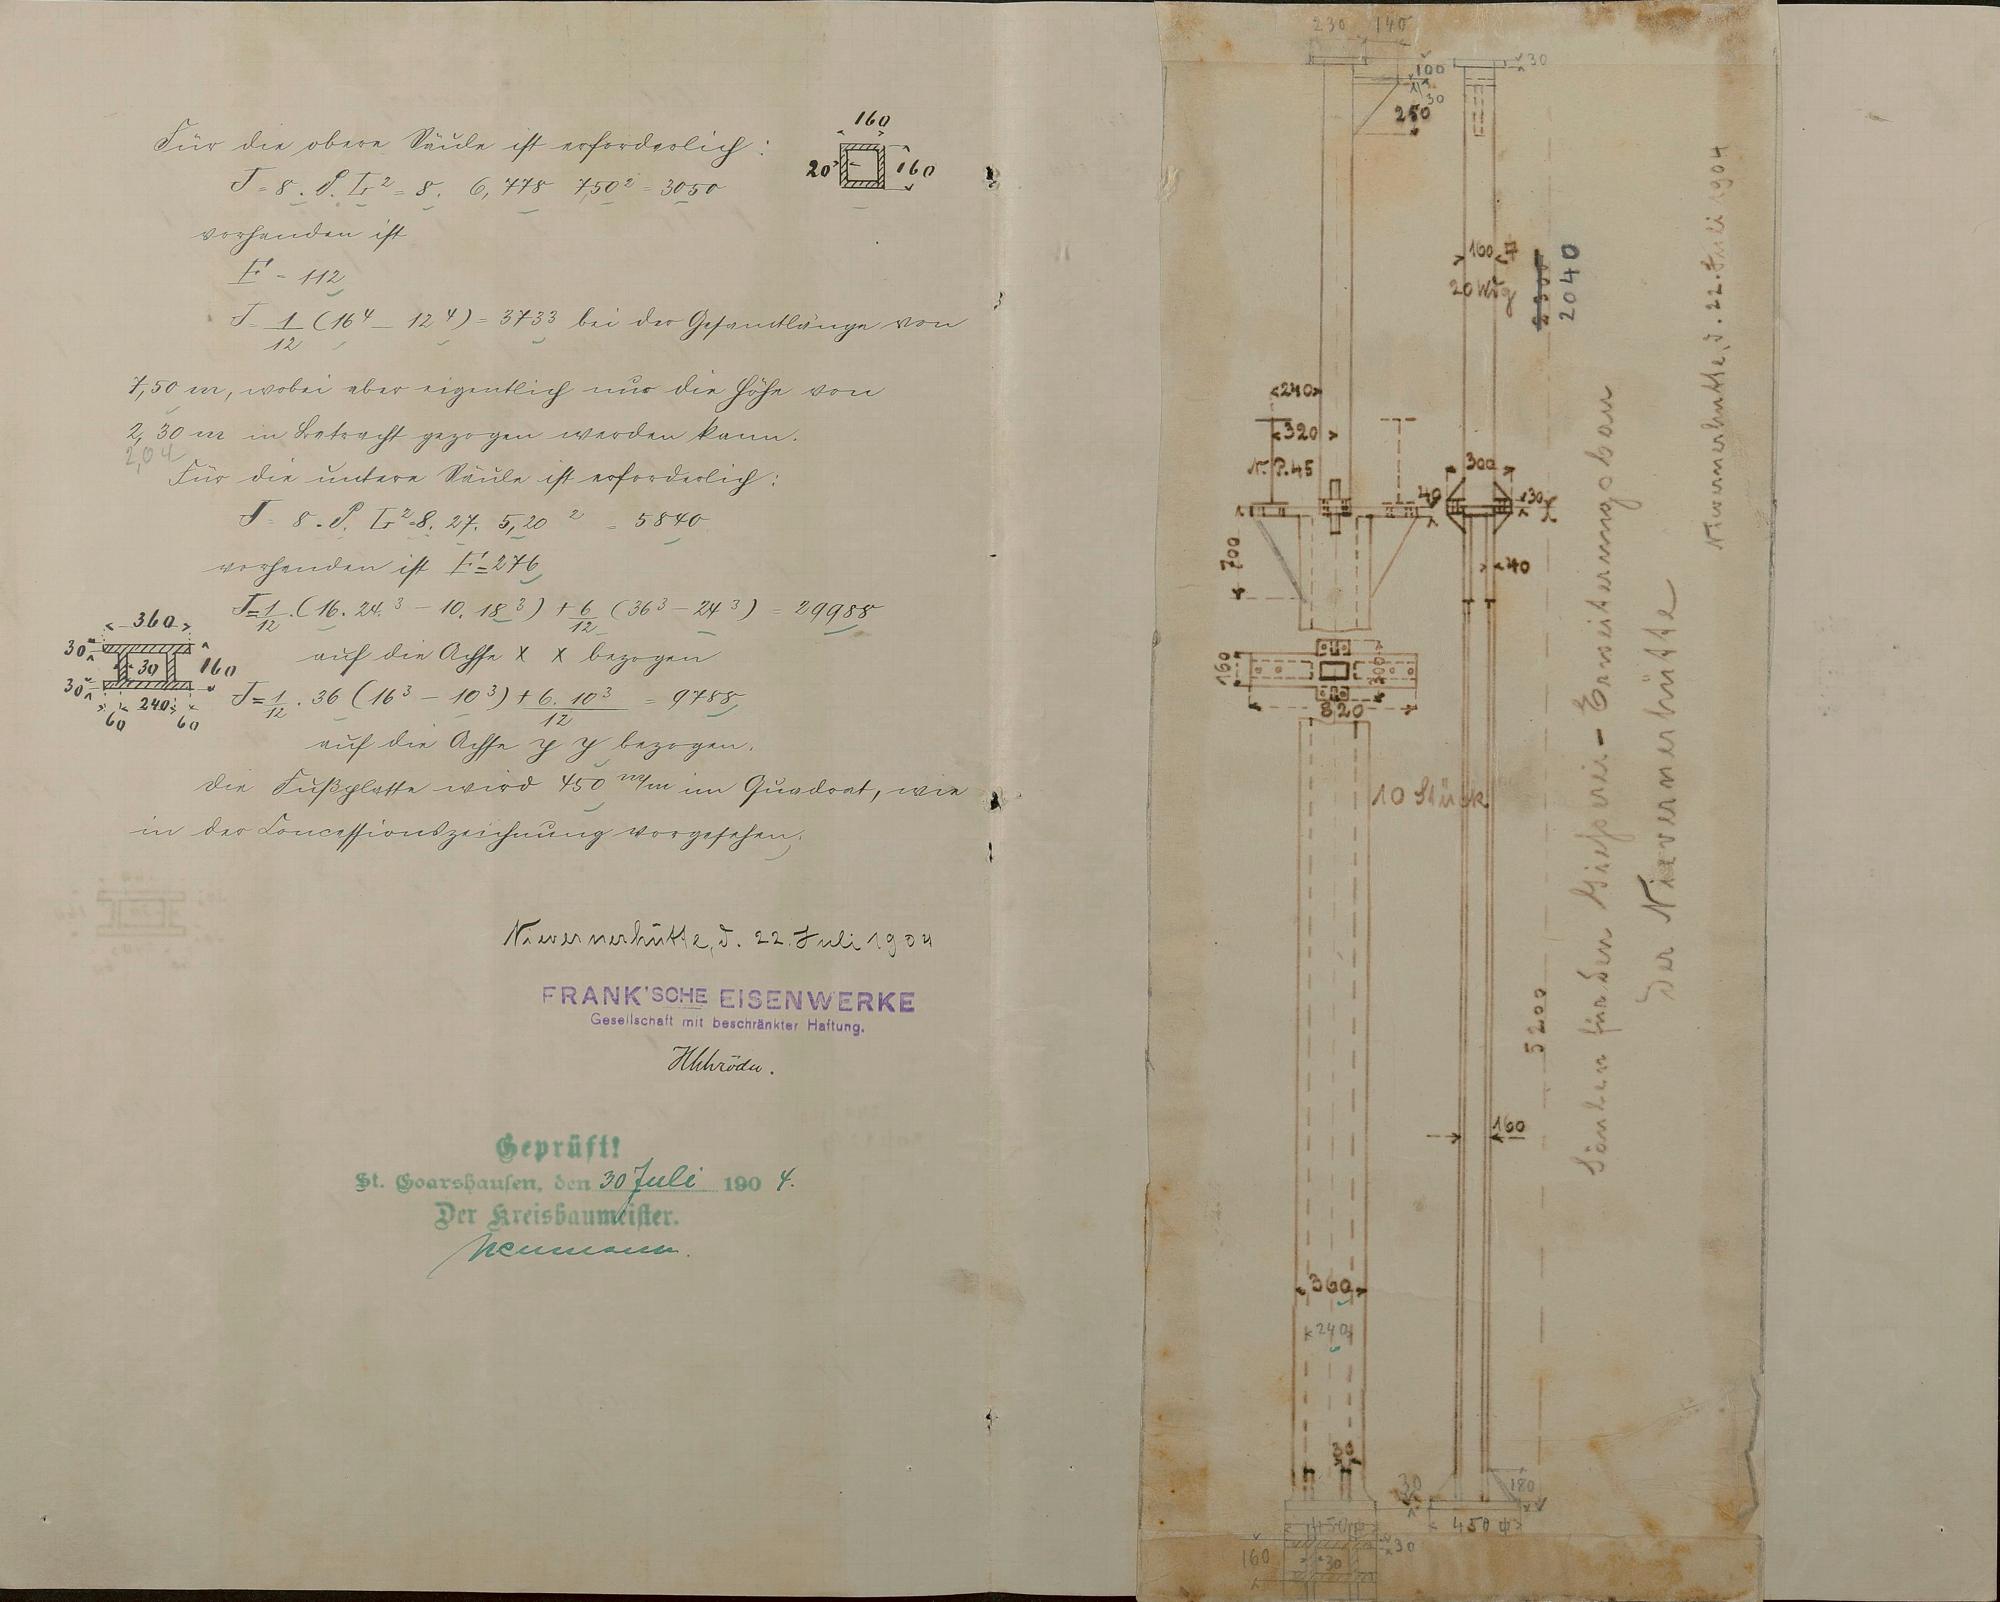 Für die obere Säule ist erforderlich:
J = 8. P. L² = 8. 6,778 7,50² = 3050
vorhanden ist
F = 112
J = 1/12 (16⁴ – 12⁴) = 3733 bei der Gesamtlänge von
7,50 m, wobei aber eigentlich nur die Höhe von
2,30 m in Betracht gezogen werden kann.
2,04
Für die untere Säule ist erforderlich:
J = 8. P. L² = 8. 27. 5,20² = 5840
vorhanden ist F = 276
J = 1/12 . (16. 24³ – 10. 18³) + 6/12 (36³ – 24³) = 29988
auf die Achse X X bezogen
J = 1/12 . 36 (16³ – 10³) + 6. 10³/12 = 9788
auf die Achse y y bezogen.
Die Fußplatte wird 450 m/m im Quadrat, wie
in der Concessionszeichnung vorgesehen.
160
20
160
360
30
30
160
30
240
60
60
Nievernerhütte, d. 22. Juli 1904
FRANK'SCHE EISENWERKE
Gesellschaft mit beschränkter Haftung.
HSchröder.
Geprüft!
St. Goarshausen, den 30 Juli 1904.
Der Kreisbaumeister.
Neumann.
230
140
100
30
30
250
160
20 Wdg
2300
2040
240
320
N.P. 45
300
40
30
700
40
160
300
820
10 Stück
5200
160
360
240
30
30
180
450
450
160
30
30
Säulen für den Giesserei-Erweiterungsbau
der Nievernerhütte
Nievernerhütte, d. 22. Juli 1904